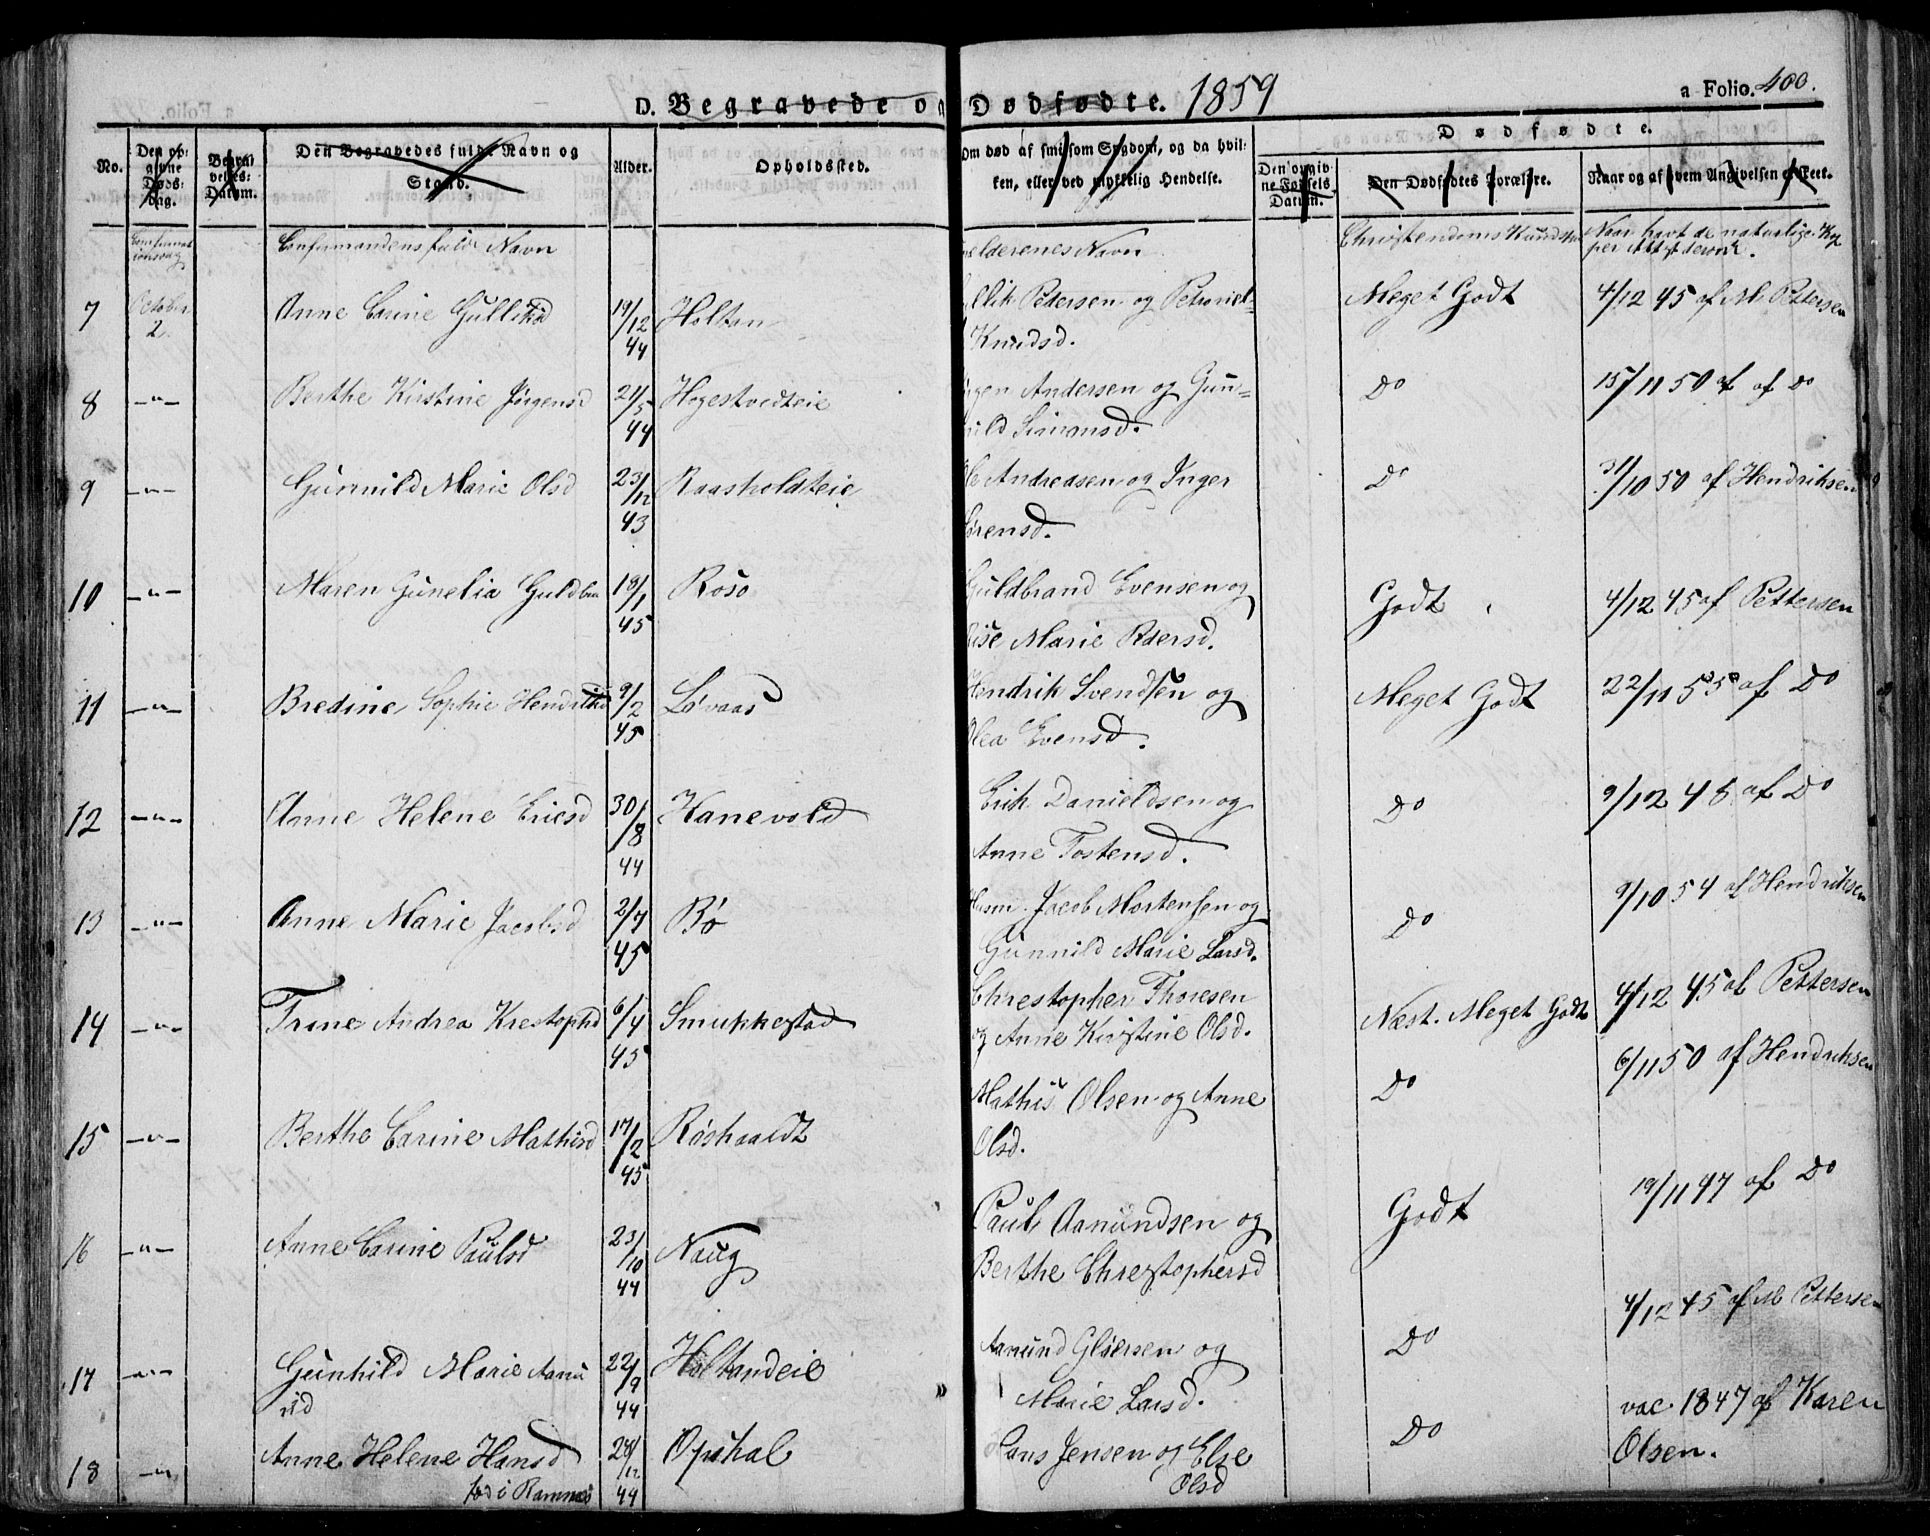 D. Begravede og Dødfødte. 1859
a Folio. 400.
No.
Den opgivne Døds-dag.
Begravelses-Datum.
Den Begravedes fulde Navn og Stand.
Alder.
Opholdssted.
Om død af smitsom Sygdom, og da hvilken, eller ved ulykkelig Hendelse.
Dødfødte.
Den opgivne Fødsels Datum.
Den Dødfødtes Forældre.
Naar og af hvem Angivelsen er skeet.
Confirmandens fulde Navn
Christendoms Kundsk
Naar havt de naturlige Kop per Attest derom.
7 October 2 Anne Carine Gulliksd 19/12 44 Holtan Pedersen og
Knudsd. Meget Godt 4/12 45 af M Pettersen
8 —"— Berthe Kirstine Jørgensd 21/5 44 Hogestvedteie Andersen og Gun-
Simonsd. Do 15/11 50 af af Do
9 —"— Gunnild Marie Olsd 23/12 43 Raasholdteie Andreasen og Inger
Sørensd. Do 31/10 50 af Hendriksen
10 —"— Maren Gunelia Guldbra 18/1 45 Røsø Guldbrand Evensen og
Marie Pedersd. Godt 4/12 45 af Pettersen
11 —"— Bredine Sophie Hendriksd 9/2 45 Løvaas Hendrik Svendsen og
Olea Evensd. Meget Godt 22/11 55 af Do
12 —"— Anne Helene Ericsd 30/8 44 Hanevold Erik Danieldsen og
Anne Tostensd. Do 9/12 48 af Do
13 —"— Anne Marie Jacobsd 2/7 45 Bø Husm. Jacob Mortensen og
Gunnild Marie Larsd. Do 9/10 54 af Hendriksen
14 —"— Trine Andrea Krestophd 6/4 45 Smukkestad Chrestopher Thoresen
og Anne Kirstine Olsd. Næst. Meget Godt 4/12 45 af Pettersen
15 —"— Berthe Carine Mathisd 17/2 45 Røshaaldt Mathis Olsen og Anne
Olsd. Do 6/11 50 af Hendriksen
16 —"— Anne Carine Paulsd 23/10 44 Naug Paul Aamundsen og
Berthe Chrestophersd Godt 19/11 47 af Do
17 —"— Gunhild Marie Aamu
nd 22/9 44 Holtandeie Aamund Gløersen og
Marie Larsd. Do 4/12 45 af M Pettersen
18 —"— Anne Helene Hansd
fød i Ramnes 28/12 44 Opsthal Hans Jensen og Else
Olsd Do vac. 1847 af Karen
Olsen.